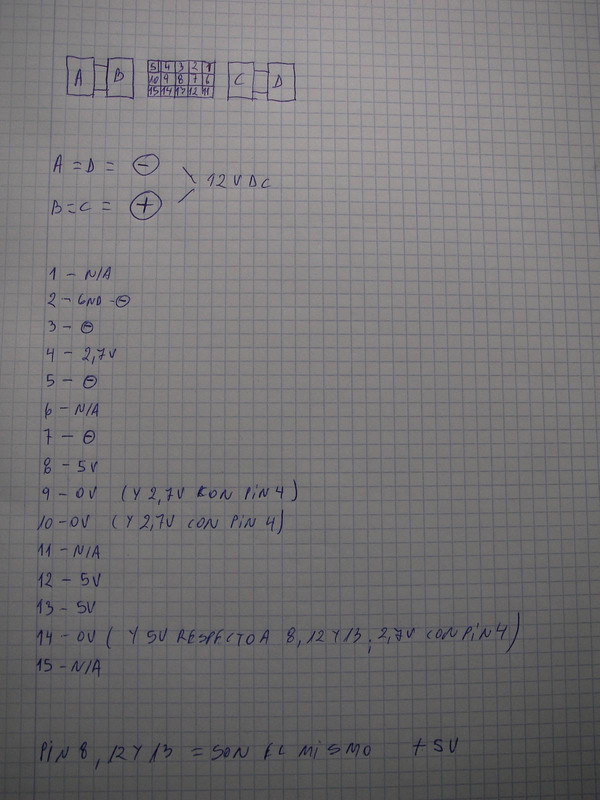 A B 5 4 3 2 1 C D
10 9 8 7 6
15 14 13 12 11
A = D = ⊖
12 V DC
B = C = ⊕
1 - N/A
2 - GND - ⊖
3 - ⊖
4 - 2,7V
5 - ⊖
6 - N/A
7 - ⊖
8 - 5V
9 - 0V (Y 2,7V KON PIN 4)
10 - 0V (Y 2,7V CON PIN 4)
11 - N/A
12 - 5V
13 - 5V
14 - 0V ( Y 5V RESPECTO A 8, 12 Y 13; 2,7V CON PIN 4)
15 - N/A
PIN 8, 12 Y 13 = SON EL MISMO +5V